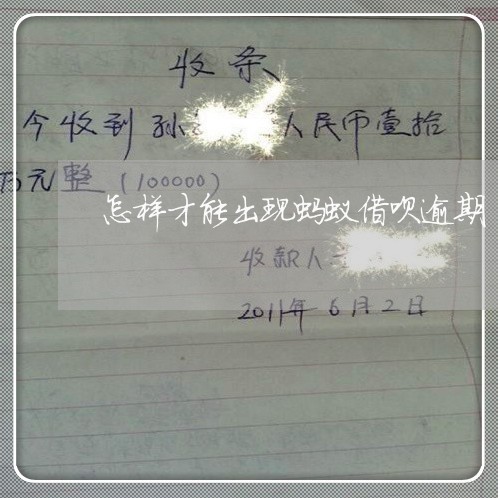 收条
今收到孙 人民币壹拾
万元整(100000)
怎样才能出现蚂蚁借呗逾期
收款人
2011年6月2日